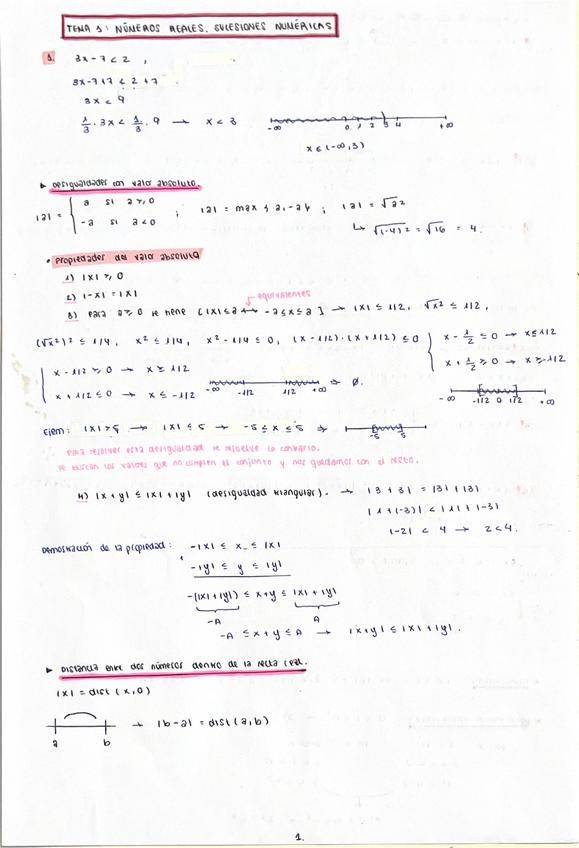 TEMA 1: NÚMEROS REALES. SUCESIONES NUMÉRICAS
1. 3x-7<2,
3x-7+7<2+7
3x<9
1/3 · 3x < 1/3 · 9 → x<3
-∞ 0 1 2 3 4 +∞
x∈(-∞,3)
► Desigualdades con valor absoluto.
|a| = { a si a≥0 ; -a si a<0 ; |a| = max {a,-a} ; |a| = √a²
↳ √(-4)² = √16 = 4.
• Propiedades del valor absoluto
1) |x| ≥ 0
2) |-x| = |x|
equivalentes
3) Para a≥0 se tiene [|x|≤a ↔ -a≤x≤a] → |x| ≤ 1/2, √x² ≤ 1/2,
(√x²)² ≤ 1/4, x² ≤ 1/4, x²-1/4 ≤ 0, (x-1/2)·(x+1/2) ≤ 0 { x - 1/2 ≤ 0 → x≤1/2
x + 1/2 ≥ 0 → x≥-1/2
{ x-1/2 ≥ 0 → x ≥ 1/2
x+1/2 ≤ 0 → x ≤ -1/2
-∞ -1/2 1/2 +∞ ⇒ ∅.
-∞ -1/2 0 1/2 +∞
Ejem: |x|>5 → |x| ≤ 5 → -5 ≤ x ≤ 5 →
-5 5
Para resolver esta desigualdad se resuelve lo contrario.
Se buscan los valores que no cumplen el conjunto y nos quedamos con el resto.
4) |x+y| ≤ |x|+|y| (desigualdad triangular). → |3+3| = |3|+|3|
|1+(-3)| < |1|+|-3|
|-2| < 4 → 2<4.
Demostración de la propiedad: -|x| ≤ x ≤ |x|
-|y| ≤ y ≤ |y|
-(|x|+|y|) ≤ x+y ≤ |x|+|y|
-A A
-A ≤ x+y ≤ A → |x+y| ≤ |x|+|y|.
► Distancia entre dos números dentro de la recta real.
|x| = dist (x,0)
a b → |b-a| = dist(a,b)
1.